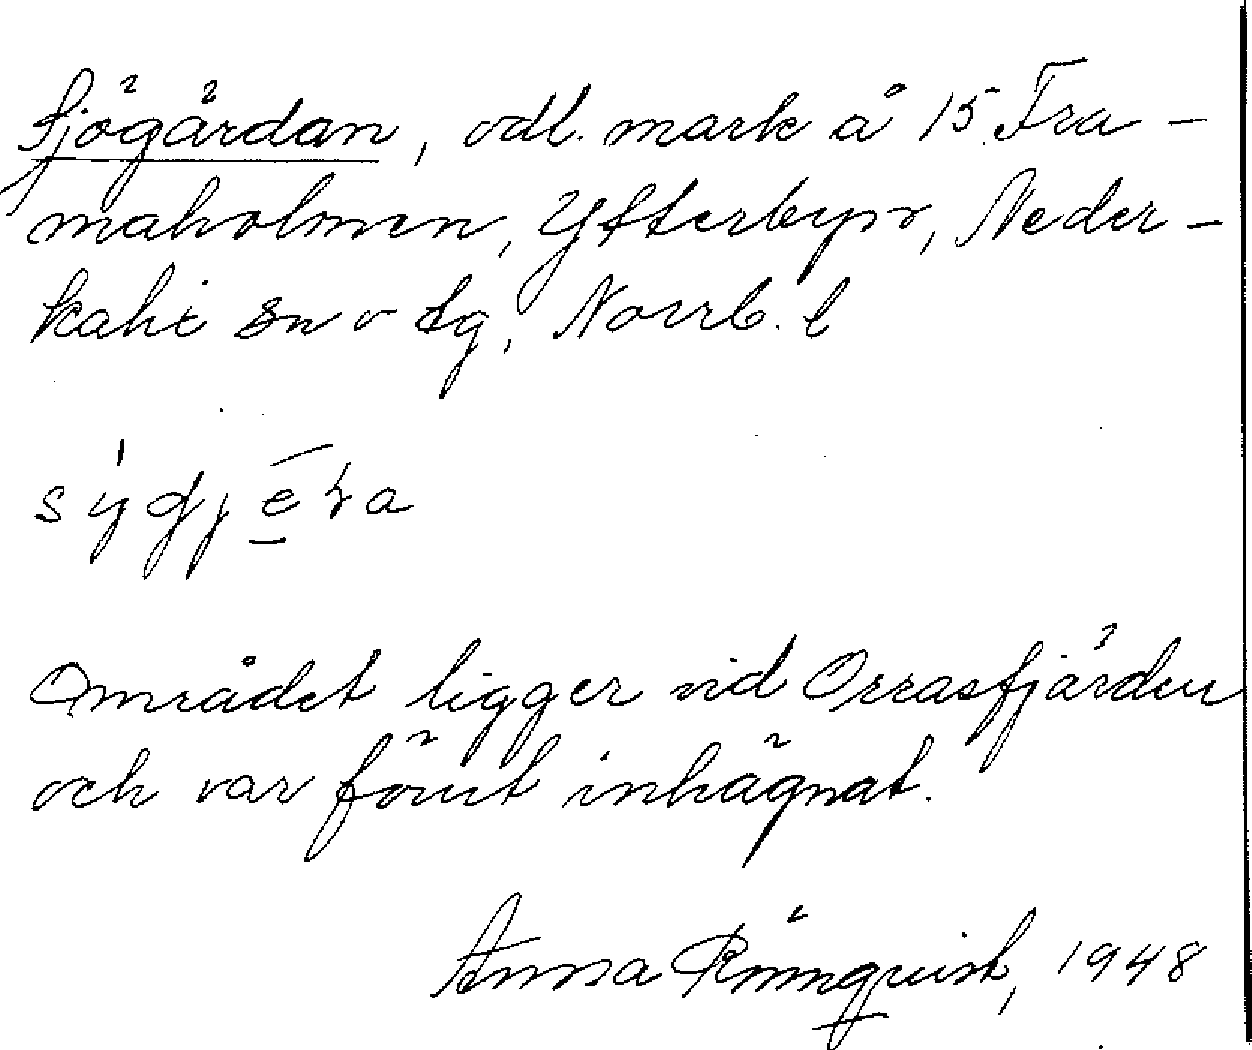 Sjögärdan, odl. mark å 15 Fra-
maholmen, Ytterbyn, Neder-
kalix sn o tg, Norrb. l
sýgjēra
Området ligger vid Orrasfjärden
och var förut inhägnat.
Anna Rönnquist, 1948